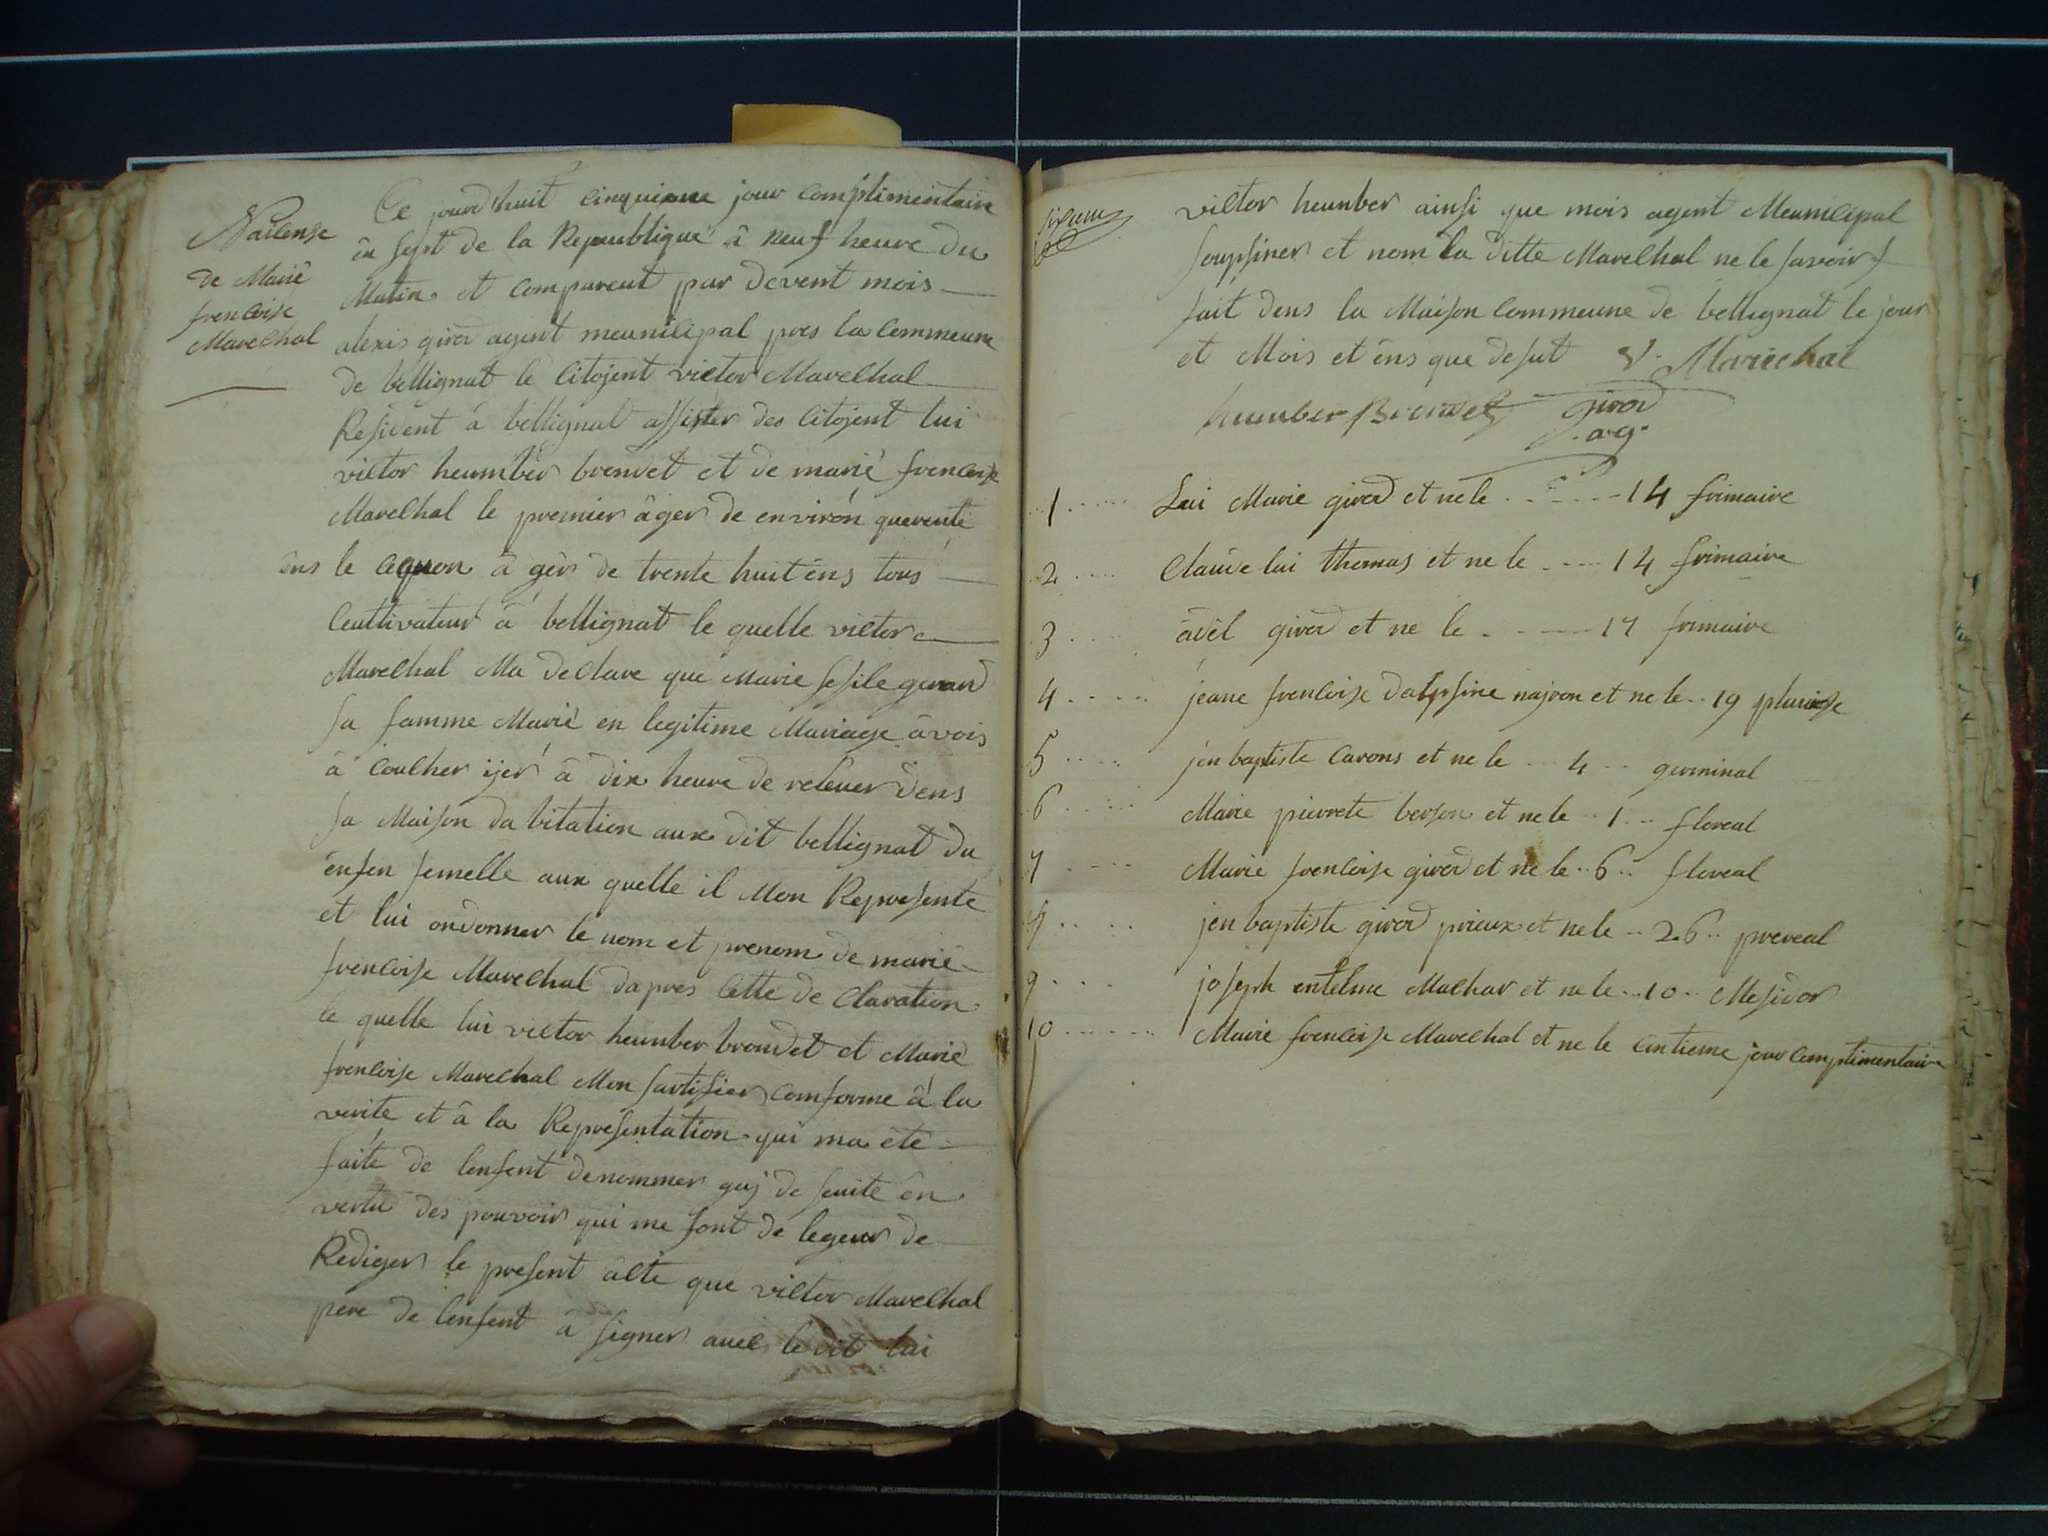 Naisense
de Marie
frencoise
Marechal
Ce jourd huit cinquieme jour complimentaire
en sept de la Republique à neuf heure du
Matin et comparent par devent mois
alexis girod agent meunicipal pres la commeune
de bellignat le citojent victor Marechal
Resident à bellignat assister des citojent lui
victor heumber brendet et de marie frencoise
Marechal le premier âger de environ querente
ens le cegon à ger de trente huit ens tous
Ceultivateur à bellignat le quelle victor
Marechal Ma declare que Marie sesile
sa famme Marie en legitime Mariage àvois
à coucher ijer à dix heure de relever dens
sa Maison da bitation aux dit bellignat du
enfen femelle aux quelle il Mon Represente
et lui ondonner le nom et prenom de marie
frencoise Marechal dapres cette de claration
le quelle lui victor heumber brendet et Marie
frencoise Marechal Mon sartifier comforme à la
verite et à la Representation qui ma ete
faite de lenfent denommer guj de seuite en
vertu des pouvoir qui me sont de legeur de
Rediger le present acte que victor Marechal
pere de lenfent à signer avec le dit lui
victor heumber ainsi que mois agent Meunicipal
soupsiner et nom la ditte Marechal ne le savoir
fait dens la Maison commeune de bellignat le jour
et Mois et ens que desut V. Marechal
heumber Brendet girod
ag.
1 Lui Marie girod et ne le 14 frimaire
2 Claude lui thomas et ne le 14 frimaire
3 àdel girod et ne le 17 frimaire
4 jeane frencoise dalfine najron et ne le 19 pluviose
5 jen baptiste carons et ne le 4 germinal
6 Marie pierrete berson et ne le 1 floreal
7 Marie frencoise girod et ne le 6 floreal
jen baptiste girod prieux et ne le 26 prereal
9 joseph entelme Machar et ne le 10 Mesidor
10 Marie frencoise Marechal et ne le cintieme jour complimentair